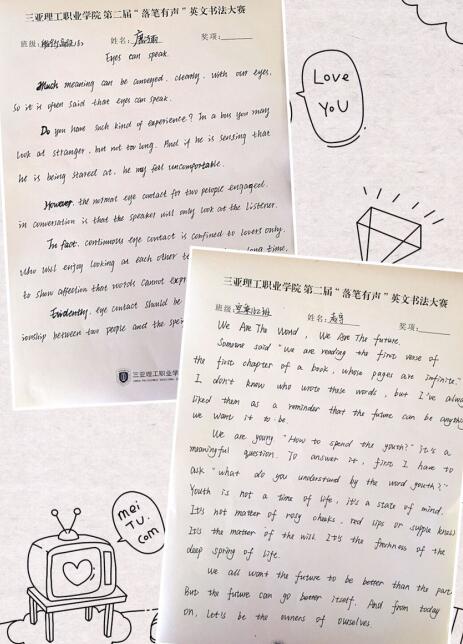 三亚理工职业学院 第二届“落笔有声”英文书法大赛
班级: 姓名: 奖项:
Eyes can speak.
Much meaning can be conveyed, clearly, with our eyes,
so it is often said that eyes can speak.
Do you have such kind of experience? In a bus you may
look at stranger, but not too long. And if he is sensing that
he is being stared at, he may feel uncomfortable.
However, the normal eye contact for two people engaged
in conversation is that the speaker will only look at the listener.
In fact, continuous eye contact is confined to lovers only,
who will enjoy looking at each other long time,
to show affection that words cannot
Evidently, eye contact should be
ionship between two people and the
三亚理工职业学
Love
You
三亚理工职业学院 第二届“落笔有声”英文书法大赛
班级: 姓名: 奖项:
We Are The World, We Are The future.
Someone said "We are reading the first verse of
the first chapter of a book, whose pages are infinite."
I don't know who wrote these words, but I've always
liked them as a reminder that the future can be anything
we want it to be.
We are young "How to spend the youth?" it's a
meaningful question. To answer it, first I have to
ask "what do you understand by the word youth?"
Youth is not a time of life, it's a state of mind.
It's not matter of rosy cheeks, red lips or supple knees
It's the matter of the will. It's the freshness of the
deep spring of life.
We all want the future to be better than the past
But the future can go better itself. And from today
on, let's be the owners of ourselves.
mei
TU.
com